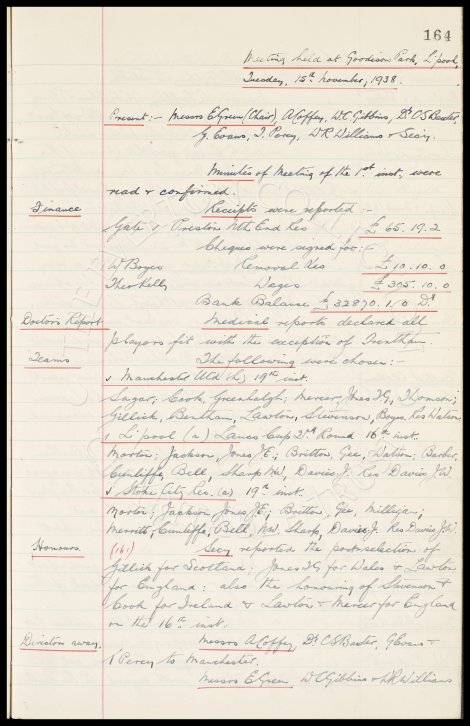 164
Meeting held at Goodison Park, L'pool,
Tuesday, 15th November, 1938.
Present:- Messrs E Green (Chair), A Coffey, W.C. Gibbins, Dr C S Baxter,
G. Evans, T. Percy, W R Williams & Secy.
Minutes of Meeting of the 1st inst, were
read & confirmed.
Finance
Receipts were reported:-
Gate v Preston Nth End Res £ 65. 19. 2
Cheques were signed for:-
W Boyes Removal Xes £ 10. 10. 0
Theo Kelly Wages £ 305. 10. 0
Bank Balance £ 32870. 1. 0 Dr
Doctor's Report
Medical reports declared all
players fit with the exception of Trentham.
Teams
The following were chosen:-
v Manchester Utd (h) 19th inst.
Sagar; Cook, Greenhalgh; Mercer, Jones T.G, Thomson;
Gillick, Bentham, Lawton, Stevenson, Boyes. Res Watson
v L'pool (a) Lancs Cup 2nd Round 16th inst.
Morton; Jackson, Jones J.E; Britton, Gee, Watson; Barber,
Cunliffe, Bell, Sharp NW, Davies J. Res Davies J.W.
v Stoke City Res. (a) 19th inst.
Morton; Jackson Jones J.E; Britton, Gee, Milligan;
Merritt, Cunliffe, Bell, NW. Sharp, Davies J. Res Davies J.W.
Honours.
(161) Secy reported the post-selection of
Gillick for Scotland: Jones T.G for Wales & Lawton
for England: also the honouring of Stevenson &
Cook for Ireland & Lawton & Mercer for England
on the 16th inst.
Directors away.
Messrs A Coffey, Dr C S Baxter, G Evans &
T Percy to Manchester.
Messrs E Green W C Gibbins & W R Williams